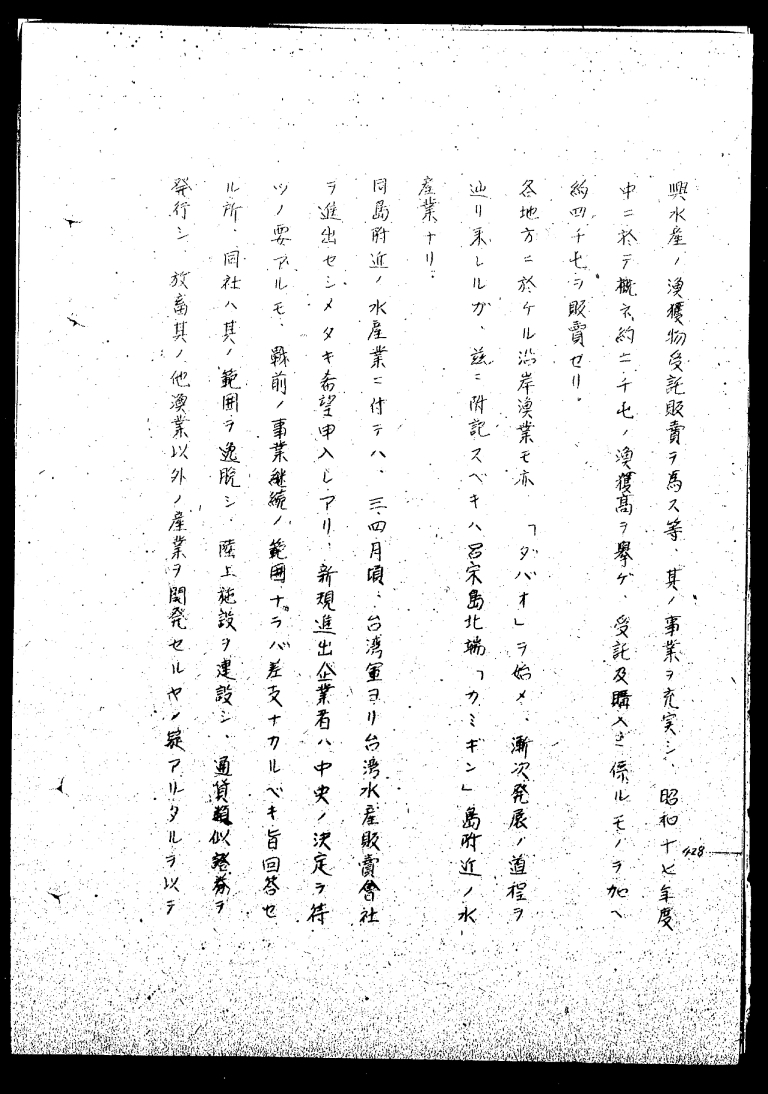 興水産ノ漁獲物受託販賣ヲ爲ス等、其ノ事業ヲ充実シ、昭和十七年度
中ニ於テ概ネ約二千屯ノ漁獲高ヲ擧ゲ、受託及購入ニ係ルモノヲ加ヘ
約四千屯ヲ販賣セリ。
各地方ニ於ケル沿岸漁業モ亦「ダバオ」ヲ始メ、漸次発展ノ道程ヲ
辿リ来レルガ、茲ニ附記スベキハ呂宋島北端「カミギン」島附近ノ水
産業ナリ。
同島附近ノ水産業ニ付テハ、三、四月頃、台湾軍ヨリ台湾水産販賣會社
ヲ進出セシメタキ希望申入レアリ、新規進出企業者ハ中央ノ決定ヲ待
ツノ要アルモ、戰前ノ事業継続ノ範囲ナラバ差支ナカルベキ旨回答セ
ル所、同社ハ其ノ範囲ヲ逸脱シ、陸上施設ヲ建設シ、通貨類似證券ヲ
発行シ、放畜其ノ他漁業以外ノ産業ヲ開発セルヤノ疑アリタルヲ以テ
428